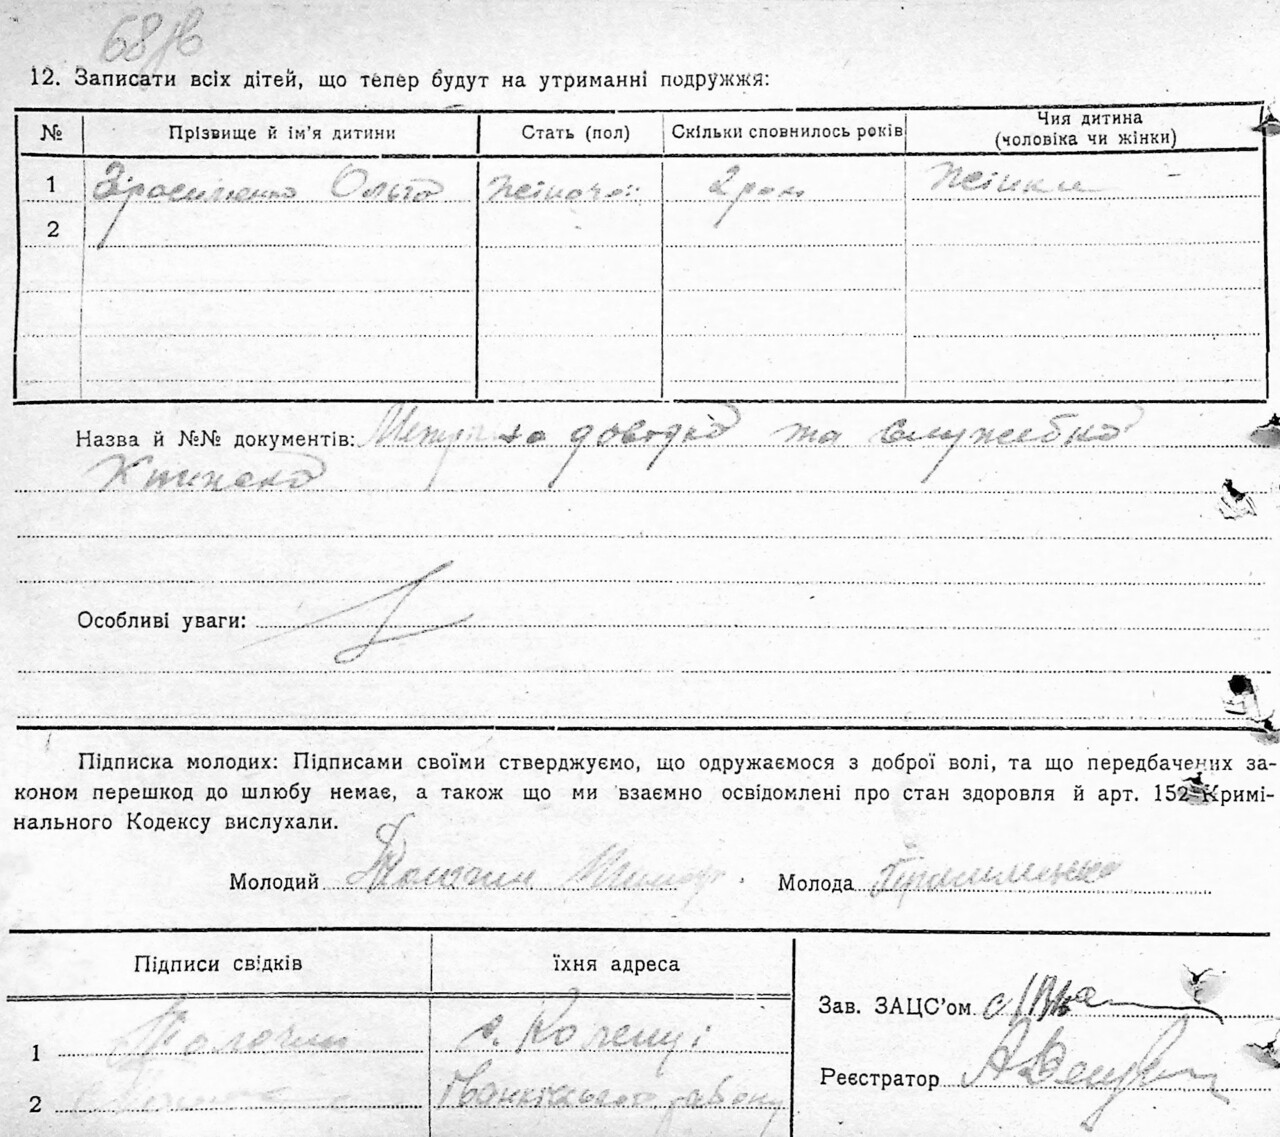 68 зв
12. Записати всіх дітей, що тепер будут на утриманні подружжя:
№ Прізвище й ім'я дитини Стать (пол) Скільки сповнилось років Чия дитина (чоловіка чи жінки)
1 Ольга жіночої 2 роки жінки
2
Назва й №№ документів: довідка та службова
книжка
Особливі уваги:
Підписка молодих: Підписами своїми стверджуємо, що одружаємося з доброї волі, та що передбачених за-
коном перешкод до шлюбу немає, а також що ми взаємно освідомлені про стан здоровля й арт. 152 Кримі-
нального Кодексу вислухали.
Молодий Молода
Підписи свідків їхня адреса
Зав. ЗАЦС'ом
1 с. Коленці
Реєстратор
2 Іванківського району